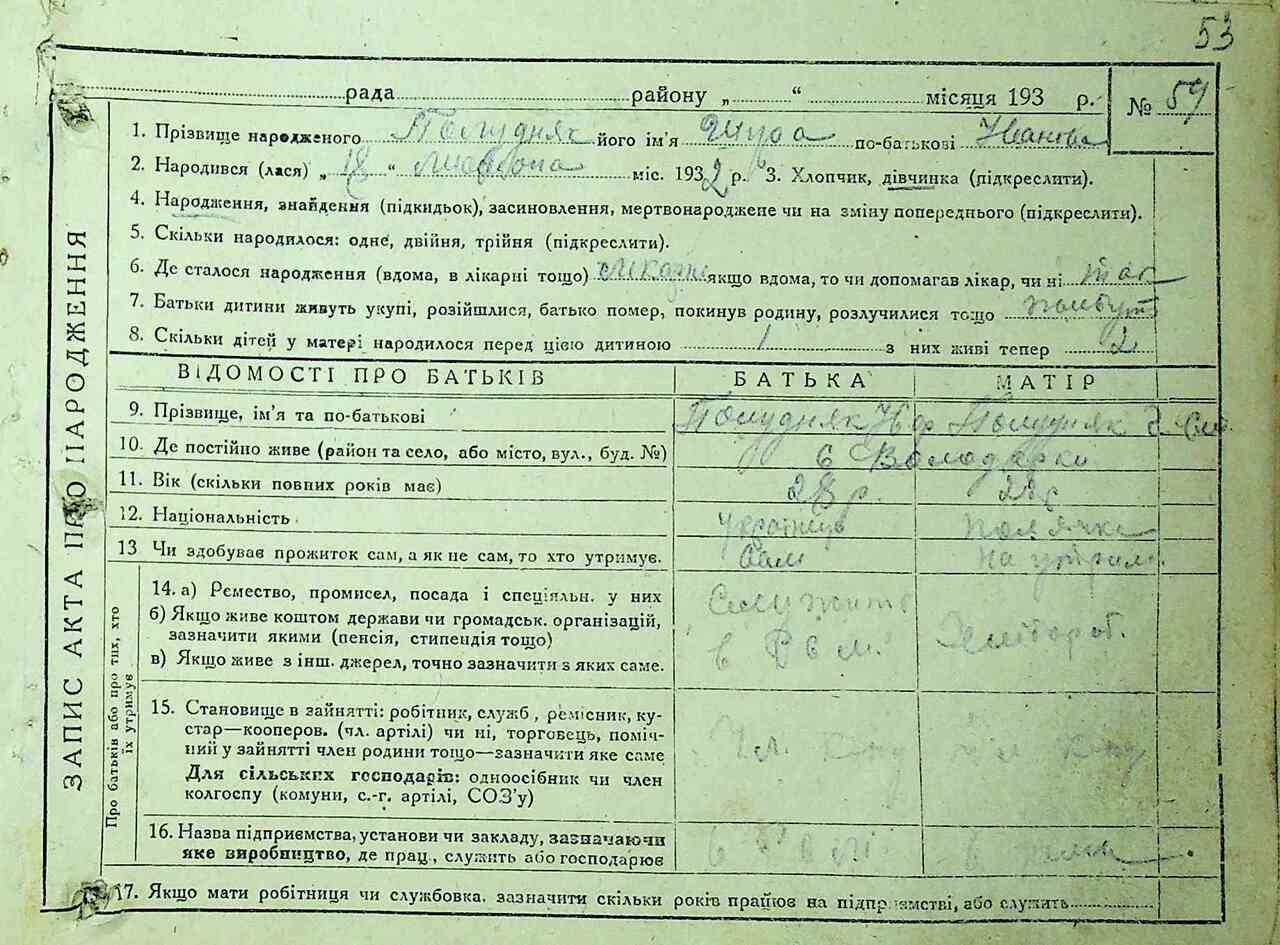 53
рада районУ „ “ місяця 193 р. № 59
1. Прізвище народженого Полудняк його ім'я Шура по-батькові Иванова
2. Народився (лася) „ 18 “ міс. 1932 р. 3. Хлопчик, дівчинка (підкреслити).
4. Народження, знайдення (підкидьок), засиновлення, мертвонароджене чи на зміну попереднього (підкреслити).
5. Скільки народилося: одне, двійня, трійня (підкреслити).
6. Де сталося народження (вдома, в лікарні тощо) якщо вдома, то чи допомагав лікар, чи ні так
7. Батьки дитини живуть укупі, розійшлися, батько помер, покинув родину, розлучилися тощо
8. Скільки дітей у матері народилося перед цією дитиною 1 з них живі тепер 2
ЗАПИС АКТА ПРО НАРОДЖЕННЯ
ВІДОМОСТІ ПРО БАТЬКІВ БАТЬКА МАТІР
9. Прізвище, ім'я та по-батькові Полудняк Полудняк
10. Де постійно живе (район та село, або місто, вул., буд. №) с Володарки
11. Вік (скільки повних років має) 28 р.
12. Національність українець полячка
13 Чи здобував прожиток сам, а як не сам, то хто утримує. Сам на утрим.
Про батьків або про тих, хто
їх утримує
14. а) Ремество, промисел, посада і спеціяльн. у них
б) Якщо живе коштом держави чи громадськ. організацій,
зазначити якими (пенсія, стипендія тощо) в
в) Якщо живе з інш. джерел, точно зазначити з яких саме.
15. Становище в зайнятті: робітник, служб , ремісник, ку-
стар—кооперов. (чл. артілі) чи ні, торговець, поміч-
ний у зайнятті член родини тощо—зазначити яке саме
Для сільських господарів: одноосібник чи член
колгоспу (комуни, с.-г. артілі, СОЗ'у)
16. Назва підприємства, установи чи закладу, зазначаючи
яке виробництво, де прац., служить або господарює в
17. Якщо мати робітниця чи службовка. зазначити скільки років працює на підприємстві, або служить